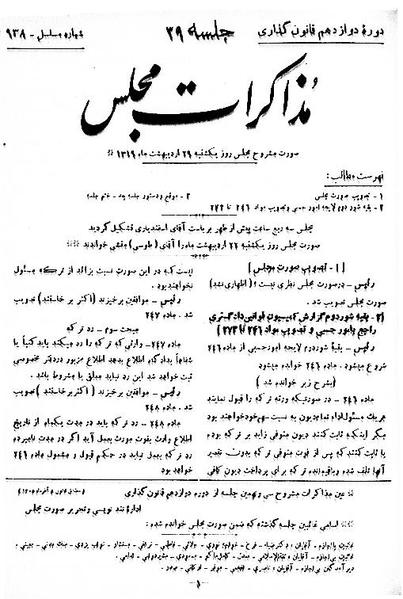 دورهٔ دوازدهم قانون گذاری
جلسه ۳۹
شماره مسلسل - ۹۳۸
مذاکرات مجلس
صورت مشروح مجلس روز یکشنبه ۲۹ اردیبهشت ماه ۱۳۱۹
فهرست مطالب:
۱ - تصویب صورت مجلس
۲ - بقیه شور دوم لایحه امور حسبی و تصویب مواد ۲۴۶ تا ۲۷۳
۳ - موقع و دستور جلسه بعد - ختم جلسه
مجلس سه ربع ساعت پیش از ظهر بریاست آقای اسفندیاری تشکیل گردید
صورت مجلس روز یکشنبه ۲۲ اردیبهشت ماه را آقای (طوسی) منشی خواندند
[۱ - تصویب صورت مجلس]
رئیس - در صورت مجلس نظری نیست؟ (اظهاری نشد)
صورت مجلس تصویب شد.
[۲ - بقیه شور دوم گزارش کمیسیون قوانین دادگستری
راجع بامور حسبی و تصویب مواد ۲۴۶ تا ۲۷۳]
رئیس - بقیهٔ شور دوم لایحه امور حسبی از ماده ۲۴۶
شروع میشود. ماده ۲۴۶ خوانده میشود
(بشرح زیر خوانده شد)
ماده ۲۴۶ - در صورتیکه ورثه ترکه را قبول نمایند
هر یک مسئول اداء تمام دیون به نسبت سهم خود خواهند بود
مگر اینکه ثابت کنند دیون متوفی زاید بر ترکه بوده
یا ثابت کنند که پس از فوت متوفی ترکه بدون تقصیر
آنها تلف شده و باقیمانده ترکه برای پرداخت دیون کافی
نیست که در این صورت نسبت بزائد از ترکه مسئول
نخواهند بود.
رئیس - موافقین برخیزند (اکثر برخاستند) تصویب
شد. ماده ۲۴۷
مبحث سوم - رد ترکه
ماده ۲۴۷ - وارثی که ترکه را رد میکند باید کتباً یا
شفاهاً بدادگاه اطلاع بدهد اطلاع مزبور در دفتر مخصوصی
ثبت خواهد شد این رد نباید معلق یا مشروط باشد.
رئیس - موافقین برخیزند (اکثر برخاستند) تصویب
شد. ماده ۲۴۸
ماده ۲۴۸ - رد ترکه باید در مدت یکماه از تاریخ
اطلاع وارث بفوت مورث بعمل آید اگر در مدت نامبرده
رد ترکه بعمل نیاید در حکم قبول و مشمول ماده ۲۴۶
خواهد بود
عین مذاکرات مشروح سی و نهمین جلسه از دوره دوازدهم قانون گذاری
اداره تند نویسی و تحریر صورت مجلس
اسامی غائبین جلسه گذشته که ضمن صورت مجلس خوانده شده: